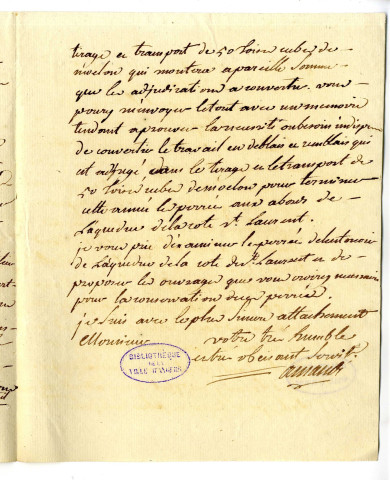 tirage et transport de 50 toises cubes de
moelon qui montera a pareille somme
que les adjudications a convertir. vous
pourés m'envoyer le tout avec un memoire
tendant a prouver la necessité ou besoin indisp
de convertir le travail en deblais et remblais qui
est adjugé dans le tirage et le transport de
50 toises cubes de moelons pour terminer
cette année le perrée aux abords de
l'aqueduc de la cote St. Laurent.
je vous prie d'examiner le perrée de l'entonoir
de l'aqueduc de la cote de St. Laurent et de
proposer les ouvrages que vous croirez necessaire
pour la conservation de ce perrée
je suis avec le plus sincere attachement
Monsieur votre très humble
et tres obeissant servit.
BIBLIOTHÈQUE
DE LA
VILLE D'ANGERS